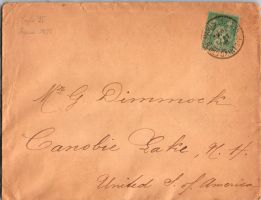 Mr G Dimmock
Canobie Lake, N. H.
United S. of America